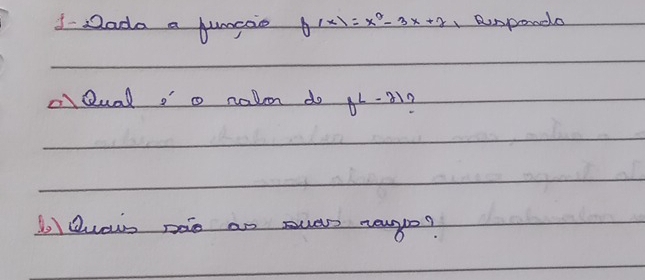 1- Dada a função f(x)=x²-3x+2, Responda
a) Qual é o valor de f(-2)?
b) Quais são as suas raízes?